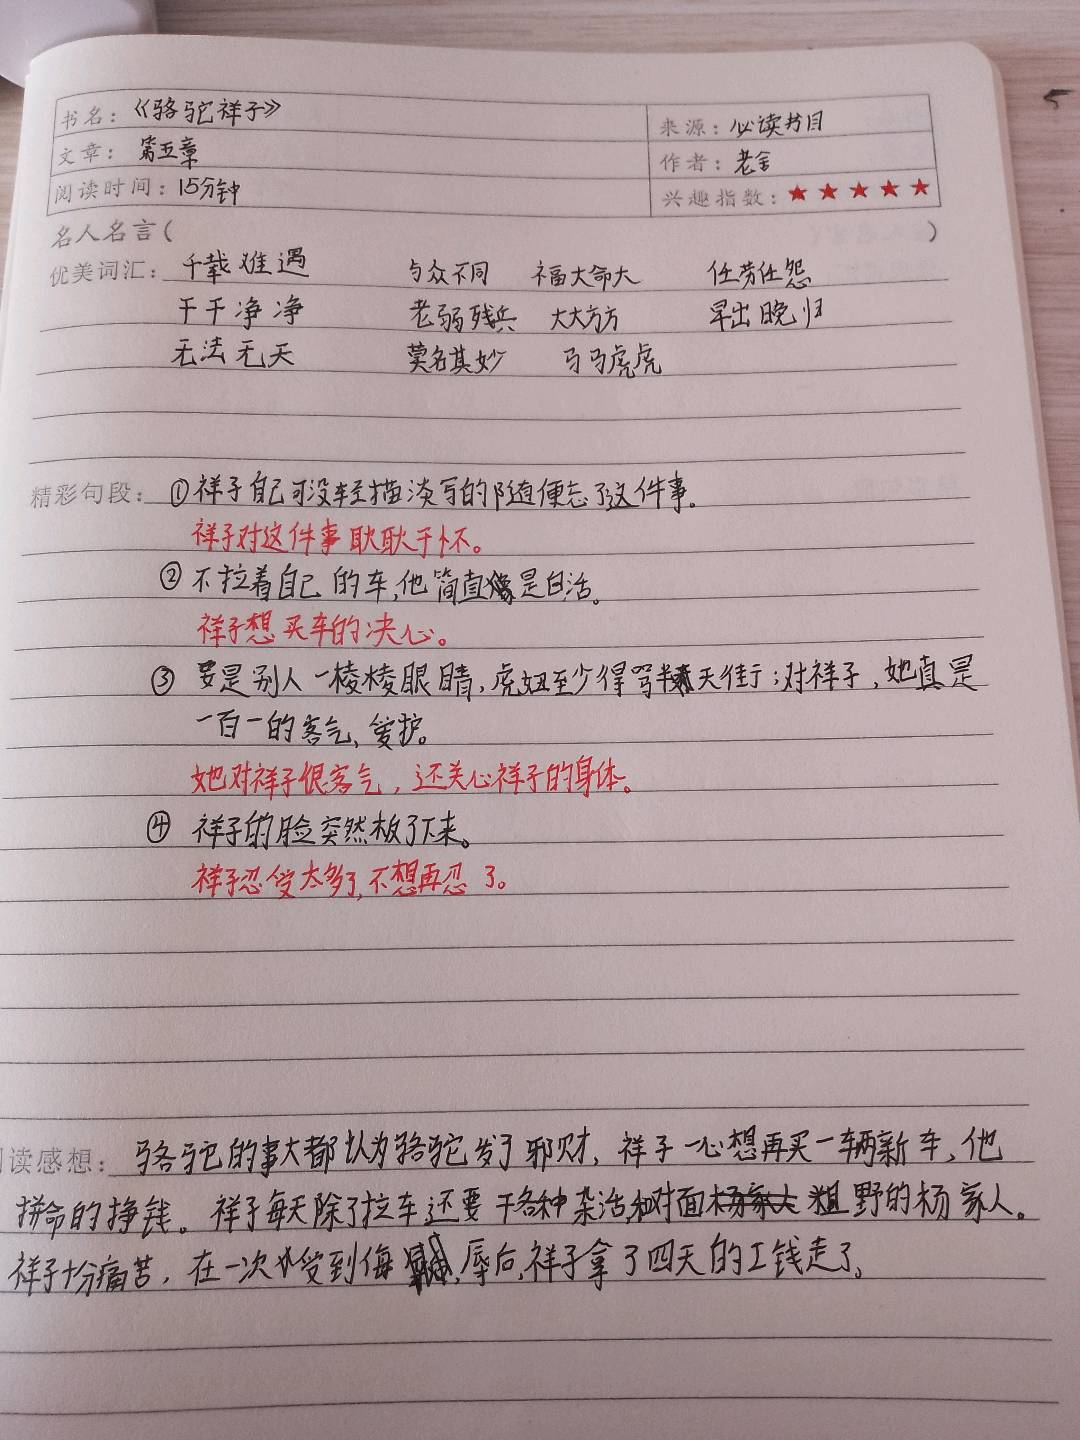 书名：《骆驼祥子》 来源：必读书目
文章：第五章 作者：老舍
阅读时间：15分钟 兴趣指数：★★★★★
名人名言（ ）
优美词汇：千载难遇 与众不同 福大命大 任劳任怨
干干净净 老弱残兵 大大方方 早出晚归
无法无天 莫名其妙 马马虎虎
精彩句段：①祥子自己可没轻描淡写的随便忘了这件事。
祥子对这件事耿耿于怀。
②不拉着自己的车,他简直像是白活。
祥子想买车的决心。
③要是别人一棱棱眼睛,虎妞至少得骂半天街；对祥子,她真是
一百一的客气、爱护。
她对祥子很客气,还关心祥子的身体。
④祥子的脸突然板了下来。
祥子忍受太多了,不想再忍了。
读感想：骆驼的事大都认为骆驼发了邪财,祥子一心想再买一辆新车,他
拼命的挣钱。祥子每天除了拉车还要干各种杂活,和对面粗野的杨家人。
祥子十分痛苦,在一次受到侮辱后,祥子拿了四天的工钱走了。